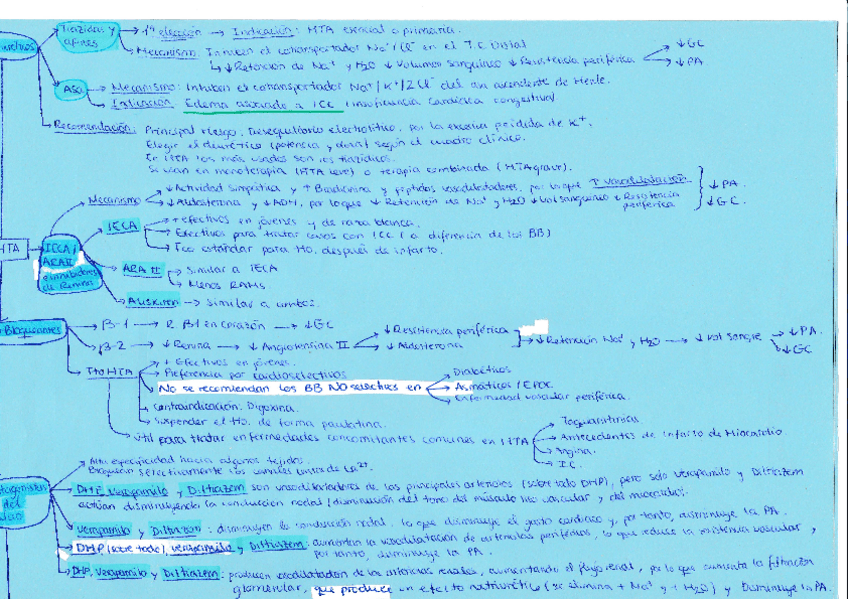 Tiazidas y afines → 1ª elección → Indicación: HTA esencial o primaria.
→ Mecanismo: Inhiben el cotransportador Na⁺/Cl⁻ en el T.C Distal
↓ Retención de Na⁺ y H2O ↓ Volumen sanguíneo ↓ Resistencia periférica ↓GC ↓PA
Asa → Mecanismo: Inhiben el cotransportador Na⁺/K⁺/2Cl⁻ del asa ascendente de Henle.
→ Indicación: Edema asociado a ICC (insuficiencia cardiaca congestiva)
Recomendación: Principal riesgo: Desequilibrio electrolítico, por la excesiva pérdida de K⁺.
Elegir el diurético (potencia y dosis) según el cuadro clínico.
En HTA los más usados son las tiazidas.
Se usan en monoterapia (HTA leve) o terapia combinada (HTA grave).
Mecanismo → ↓ Actividad Simpática y ↑ Bradicinina y péptidos vasodilatadores, por lo que ↑ vasodilatación ↓ PA.
↓ Aldosterona y ↓ ADH, por lo que ↓ Retención de Na⁺ y H2O ↓ Vol sanguíneo ↓ Resistencia periférica ↓ GC.
HTA
IECA, ARA II e inhibidores de Renina
IECA → + efectivos en jóvenes y de raza blanca.
→ Efectivos para tratar casos con ICC (a diferencia de los BB)
→ Tto estándar para tto. después de infarto.
ARA II → Similar a IECA
→ Menos RAMs
Aliskiren → Similar a ambos.
Bloqueantes
β-1 → R. β1 en corazón → ↓ GC
β-2 → ↓ Renina → ↓ Angiotensina II ↓ Resistencia periférica ↓ Aldosterona ↓ Retención Na⁺ y H2O → ↓ Vol sangre → ↓ PA. ↓ GC
Tto HTA → + Efectivos en jóvenes.
→ Preferencia por cardioselectivos
→ No se recomiendan los BB NO selectivos en Diabéticos
Asmáticos / EPOC
Enfermedad vascular periférica.
→ Contraindicación: Digoxina.
→ Suspender el tto. de forma paulatina.
→ Útil para tratar enfermedades concomitantes comunes en HTA Taquiarritmias.
Antecedentes de infarto de Miocardio.
Angina.
IC.
Alta especificidad hacia algunos tejidos.
Bloquean selectivamente los canales de Ca²⁺.
DHP, Verapamilo y Diltiazem son vasodilatadores de las principales arterias (sobre todo DHP), pero solo verapamilo y Diltiazem
actúan disminuyendo la conducción nodal (disminución del tono del músculo liso vascular y del miocardio).
Verapamilo y Diltiazem: disminuyen la conducción nodal, lo que disminuye el gasto cardiaco y, por tanto, disminuye la PA.
DHP (sobre todo), verapamilo y Diltiazem: aumentan la vasodilatación de arteriolas periféricas, lo que reduce la resistencia vascular y
por tanto, disminuye la PA.
DHP, Verapamilo y Diltiazem: producen vasodilatación de las arterias renales, aumentando el flujo renal, por lo que aumenta la filtración
glomerular, que produce un efecto natriurético (se elimina + Na⁺ y + H2O) y Disminuye la PA.